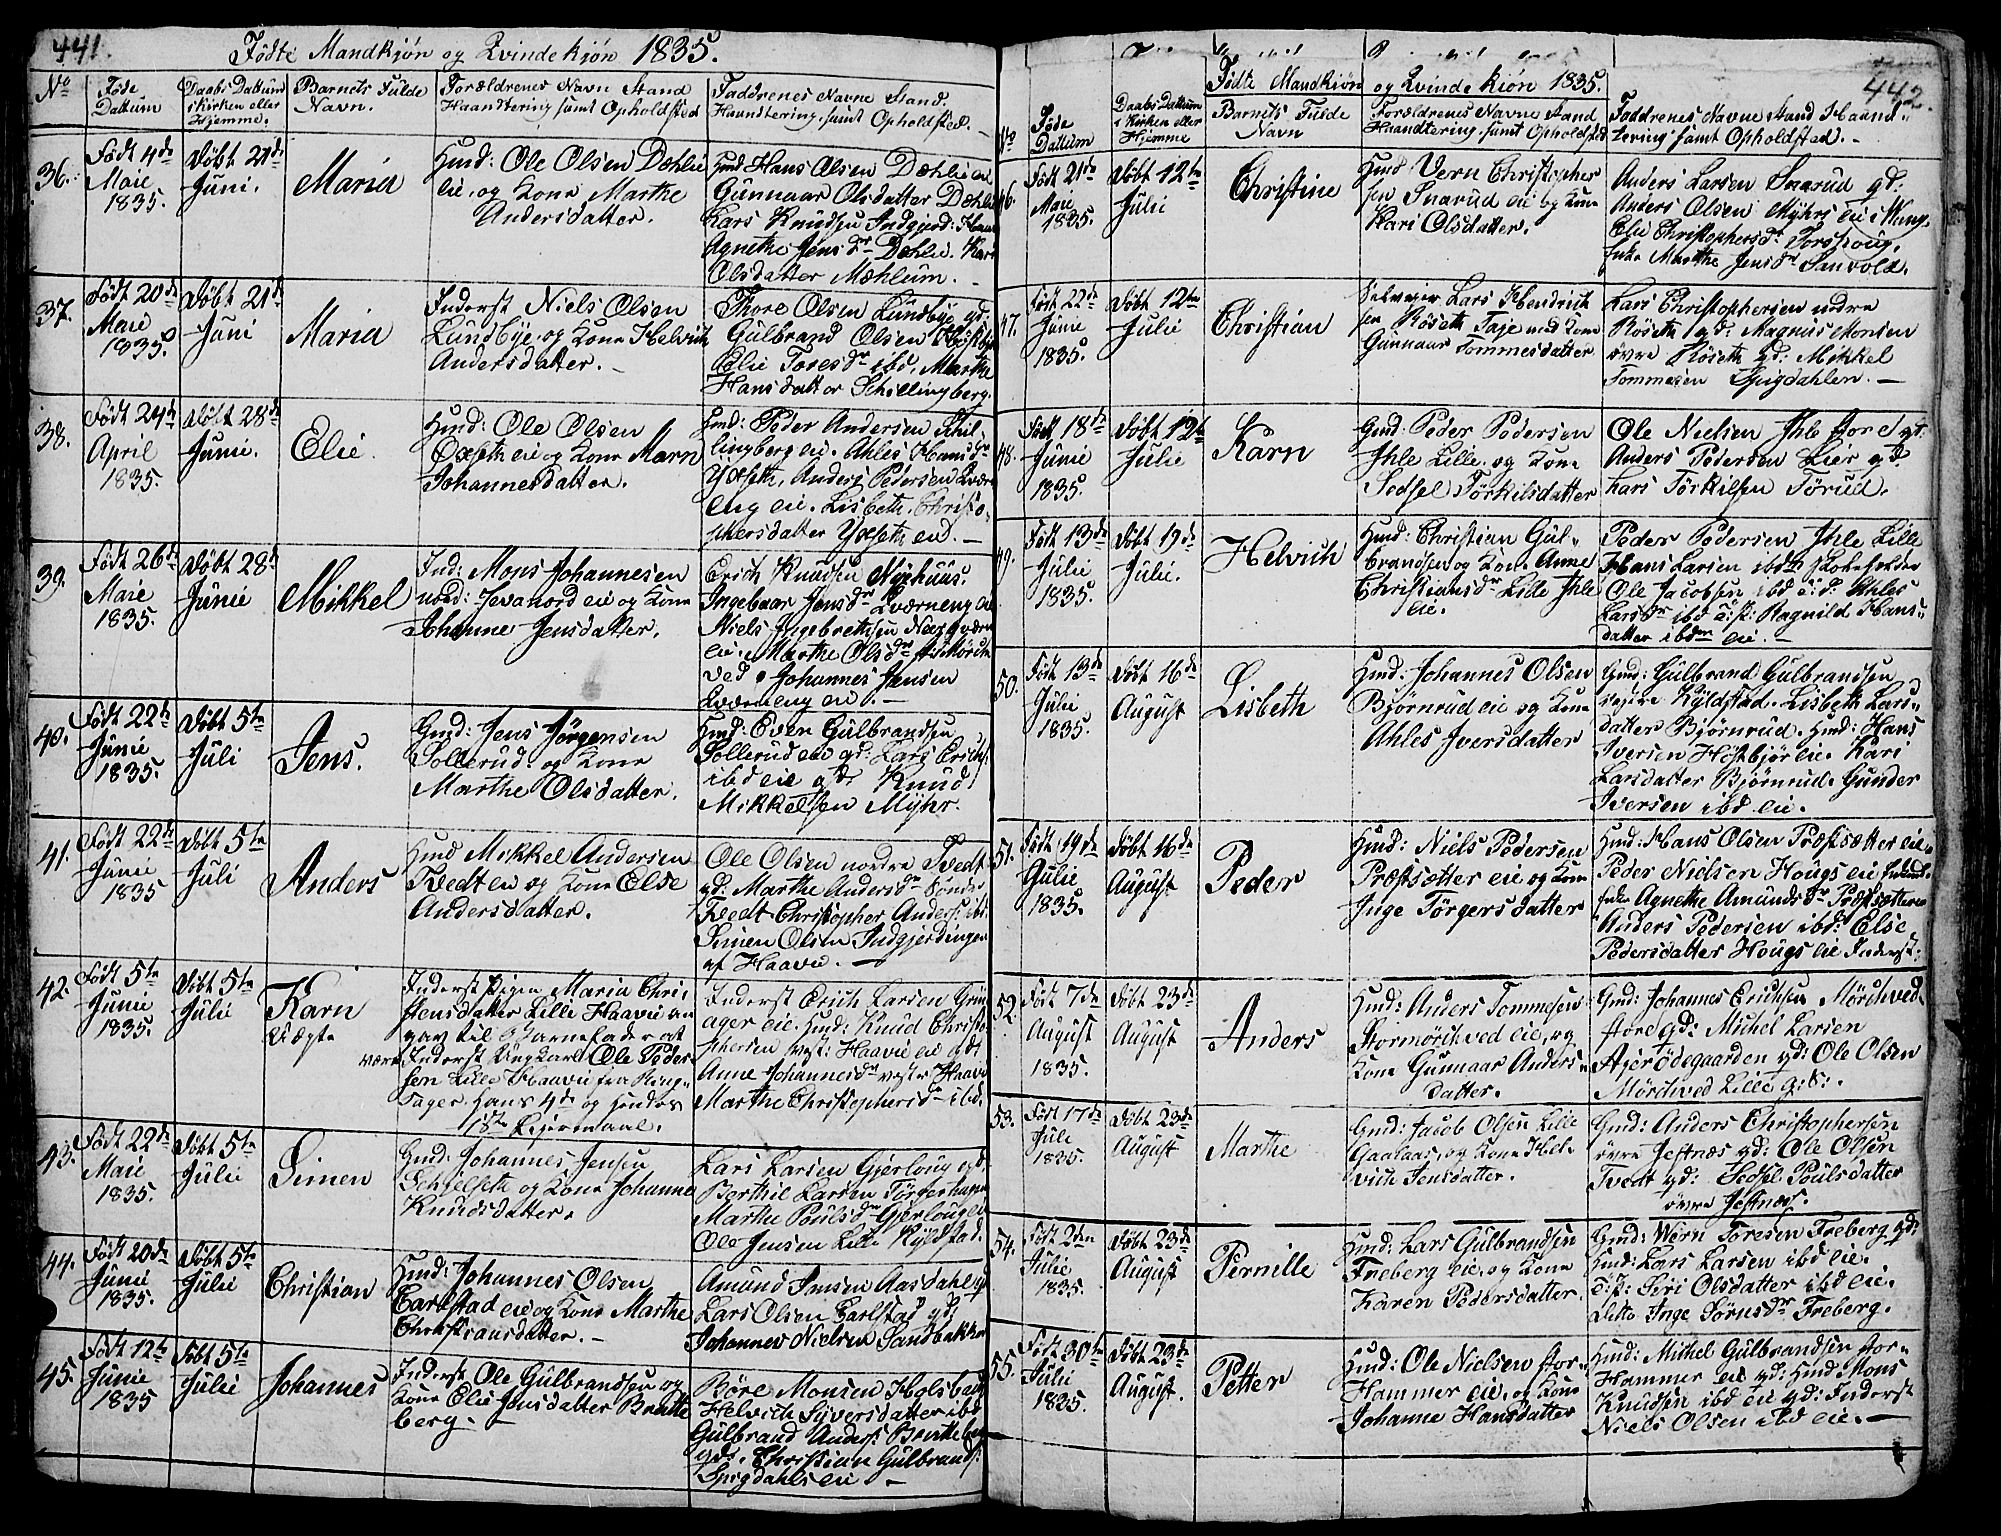 441.
Födte Mandkjön og Qvindekjön 1835.
No
Föde Dattum
Daabs Dattum i Kirken eller Hjemme.
Barnets Fulde Navn.
Forældrenes Navn Stand Haandtering samt Opholdsted
Faddrenes Navne Stand. Haandtering, samt Opholdsted.
36.
Födt 4de
Maie
1835.
Döbt 21de
Juni.
Maria
Hmd: Ole Olsen Dæhlie
eie, og Kone Marthe
Andersdatter.
Hmd Hans Olsen Dæhlie
Gunnaar Olsdatter Dæhlie
Lars Knudsen Indgjerd.
Agnethe Jensdr Dæhlie. Kari
Olsdatter Mæhlum.
37.
Födt 20de
Maie
1835.
Döbt 21de
Juni
Maria
Inderst Niels Olsen
Lundbye, og Kone Helvich
Andersdatter.
Thore Olsen Lundbye gd:
Gulbrand Olsen
Elie Toresdr ibd, Marthe
Hansdatter Schillingberg.
38.
Födt 24de
April
1835.
Döbt 28de
Junie.
Elie
Hmd: Ole Olsen
Oxseth eie og Kone Marn
Johannesdatter.
Hmd: Peder Andersen Skil-
lingberg eie. Ahles Hansdr
Yxseth, Anders Pedersen Qværn
eng eie. Lisbeth Christo-
phersdatter Yxseth eie.
39.
Födt 26de
Maie
1835.
Döbt 28de
Junie
Mikkel
Ind: Mons Johannesen
eie og Kone
Johanne Jensdatter.
Erich Knudsen Nyehuus.
Ingebaar Jensdr Qværneng eie
Niels Ingebrethsen
eie. Marthe Olsdr
Johannes Jensen
Qværneng eie.
40.
Födt 22de
Junie
1835.
Döbt 5te
Juli
Jens.
Gmd: Jens Jörgensen
Sollerud og Kone
Marthe Olsdatter.
Hmd: Even Gulbrandsen
Sollerud eie gd: Lars Erichs.
ibd eie gd: Knud
Mikkelsen Myhr.
41.
Födt 22de
Junie
1835
Döbt 5te
Juli
Anders
Hmd Mikkel Andersen
Tvedt eie og Kone Else
Andersdatter.
Ole Olsen nordre Tvedt
gd: Marthe Andersdr Söndre
Tvedt Christopher Anders: ibd.
Simen Olsen Indgjerdingen
af Haavie.
42.
Födt 5te
Junie
1835.
Döbt 5te
Julie
Karn
Uægte
Inderst Pigen Maria Chri-
stensdatter Lille Haavie an-
gav til Barnefader at
være Inderst Ungkarl Ole Peder-
sen Lille Haavie fra Ring-
sager. Hans 4de og Hendes
1ste Leiermaal.
Inderst Erich Larsen Grön
ager eie. Hmd: Knud Christo-
phersen vest: Haavie eie gd:
Anne Johannesdr vestr Haavie
Marthe Christophersdr ibd.
43.
Födt 22de
Maie
1835.
Döbt 5te
Julie
Simen
Gmd: Johannes Jensen
Schielseth og Kone Johanne
Knudsdatter.
Lars Larsen Gjerloug gd.
Berthil Larsen Törgerhagen
Marthe Poulsdr Gjerloug eie
Ole Jensen Lille Kyldstad.
44.
Födt 20de
Junie
1835.
Döbt 5te
Julie
Christian
Hmd: Johannes Olsen
Carlstad eie og Kone Marthe
Christiansdatter.
Amund Jensen Aasdahl gd
Lars Olsen Carlstad gd:
Johannes Nielsen Sandbakken
45.
Födt 12te
Junie
1835
Döbt 5te
Julie
Johannes
Inderst Ole Gulbrandsen og
Kone Elie Jensdatter Bratte
berg.
Böre Monsen Holsbakk
Helvich Syversdatter ibd
Gulbrand Anders: Bratteberg
gd. Christian Gulbrands:
Spigdahls eie
442.
Födte Mandkiön og Qvindekiön 1835.
No
Föde Dattum
Daabs Dattum i Kirken eller Hjemme
Barnets Fulde Navn
Forældrenes Navn Stand Haandtering, samt Opholdsted
Faddrenes Navne Stand Haand-
tering samt Opholdsted.
46.
Födt 21de
Maie
1835.
Döbt 12te
Julie
Christine
Hmd Vern Christopher
sen Snarud eie og Kone
Kari Olsdatter.
Anders Larsen Snarud gd:
Anders Olsen Myhrs eie
Elie Christophersdr Torshoug.
Enke Marthe Jensdr Sanvold.
47.
Födt 22de
Junie
1835.
Döbt 12te
Julie
Christian
Selveier Lars Hendrich
sen Röseth med Kone
Gunnaar Tommesdatter
Lars Christophersen nedre
Röseth gd: Magnus Monsen
övre Röseth gd: Mikkel
Tommesen Spigdahlen.
48.
Födt 18de
Junie
1835.
Döbt 12te
Julie
Karn
Gmd: Peder Pedersen
Ihle Lille og Kone
Sedsel Törkilsdatter
Ole Nielsen Ihle store gd.
Anders Pedersen Lier gd.
Lars Törkilsen Törud.
49.
Födt 13de
Julie
1835.
Döbt 19de
Julie.
Helvich
Hmd: Christian Gul-
brandsen og Kone Anne
Christiansdr Lille Ihle
eie.
Peder Pedersen Ihle Lille
Hans Larsen ibdm Skoleholder
Ole Jacobsen ibd e: P: Ahles
Larsdr ibd e: P: Ragnild Hans-
datter ibdm eie.
50.
Födt 13de
Julie
1835.
Döbt 16de
August
Lisbeth
Hmd: Johannes Olsen
Björnrud eie og Kone
Ahles Iversdatter
Gmd: Gulbrand Gulbrandsen
Kyldstad. Lisbeth Lars-
datter Björnrud. Hmd: Hans
Iversen Höstbjör eie. Kari
Larsdatter Björnrud. Gunder
Iversen ibd eie.
51.
Födt 19de
Julie
1835.
Döbt 16de
August
Peder
Hmd: Niels Pedersen
Præstsætter eie og Kone
Inge Törgersdatter
Hmd: Hans Olsen Præstsætter eie.
Peder Nielsen Hougs eie
Agnethe Amundsdr Præstsætter eie
Anders Pedersen ibd: Else
Pedersdatter Hougs eie Inderst.
52.
Födt 7de
August
1835.
Döbt 23de
August
Anders
Hmd: Anders Tommesen
Stormörchved eie, og
Kone Gunnaar Anders-
datter.
Gmd: Johannes Erichsen Mörchved
store gd: Michel Larsen
Ajerödegaarden gd: Ole Olsen
Mörchved Lille g:d:.
53.
Födt 17de
Juli
1835.
Döbt 23de
August
Marthe
Gmd: Jacob Olsen Lille
Gaalaas, og Kone Hel-
vich Jensdatter.
Gmd: Anders Christophersen
övre Jestnæs gd: Ole Olsen
Tvedt gd: Sedsel Poulsdatter
övre Jestnæs.
54.
Födt 2den
Julie
1835.
Döbt 23de
August
Pernille
Hmd: Lars Gulbrandsen
Freberg eie, og Kone
Karen Pedersdatter
Gmd: Wern Toresen Freberg gd:
Hmd: Lars Larsen ibd eie.
e: P: Siri Olsdatter ibd eie.
Ditto Inge Sörnsdr Freberg.
55.
Födt 30te
Julie
1835.
Döbt 23de
August.
Petter
Hmd: Ole Nielsen stor-
Hammer eie, og Kone
Johanne Hansdatter
Hmd: Michel Gulbrandsen stor-
Hammer eie gd: Hmd Mons
Knudsen ibd eie gd: Inderst
Niels Olsen ibd eie.